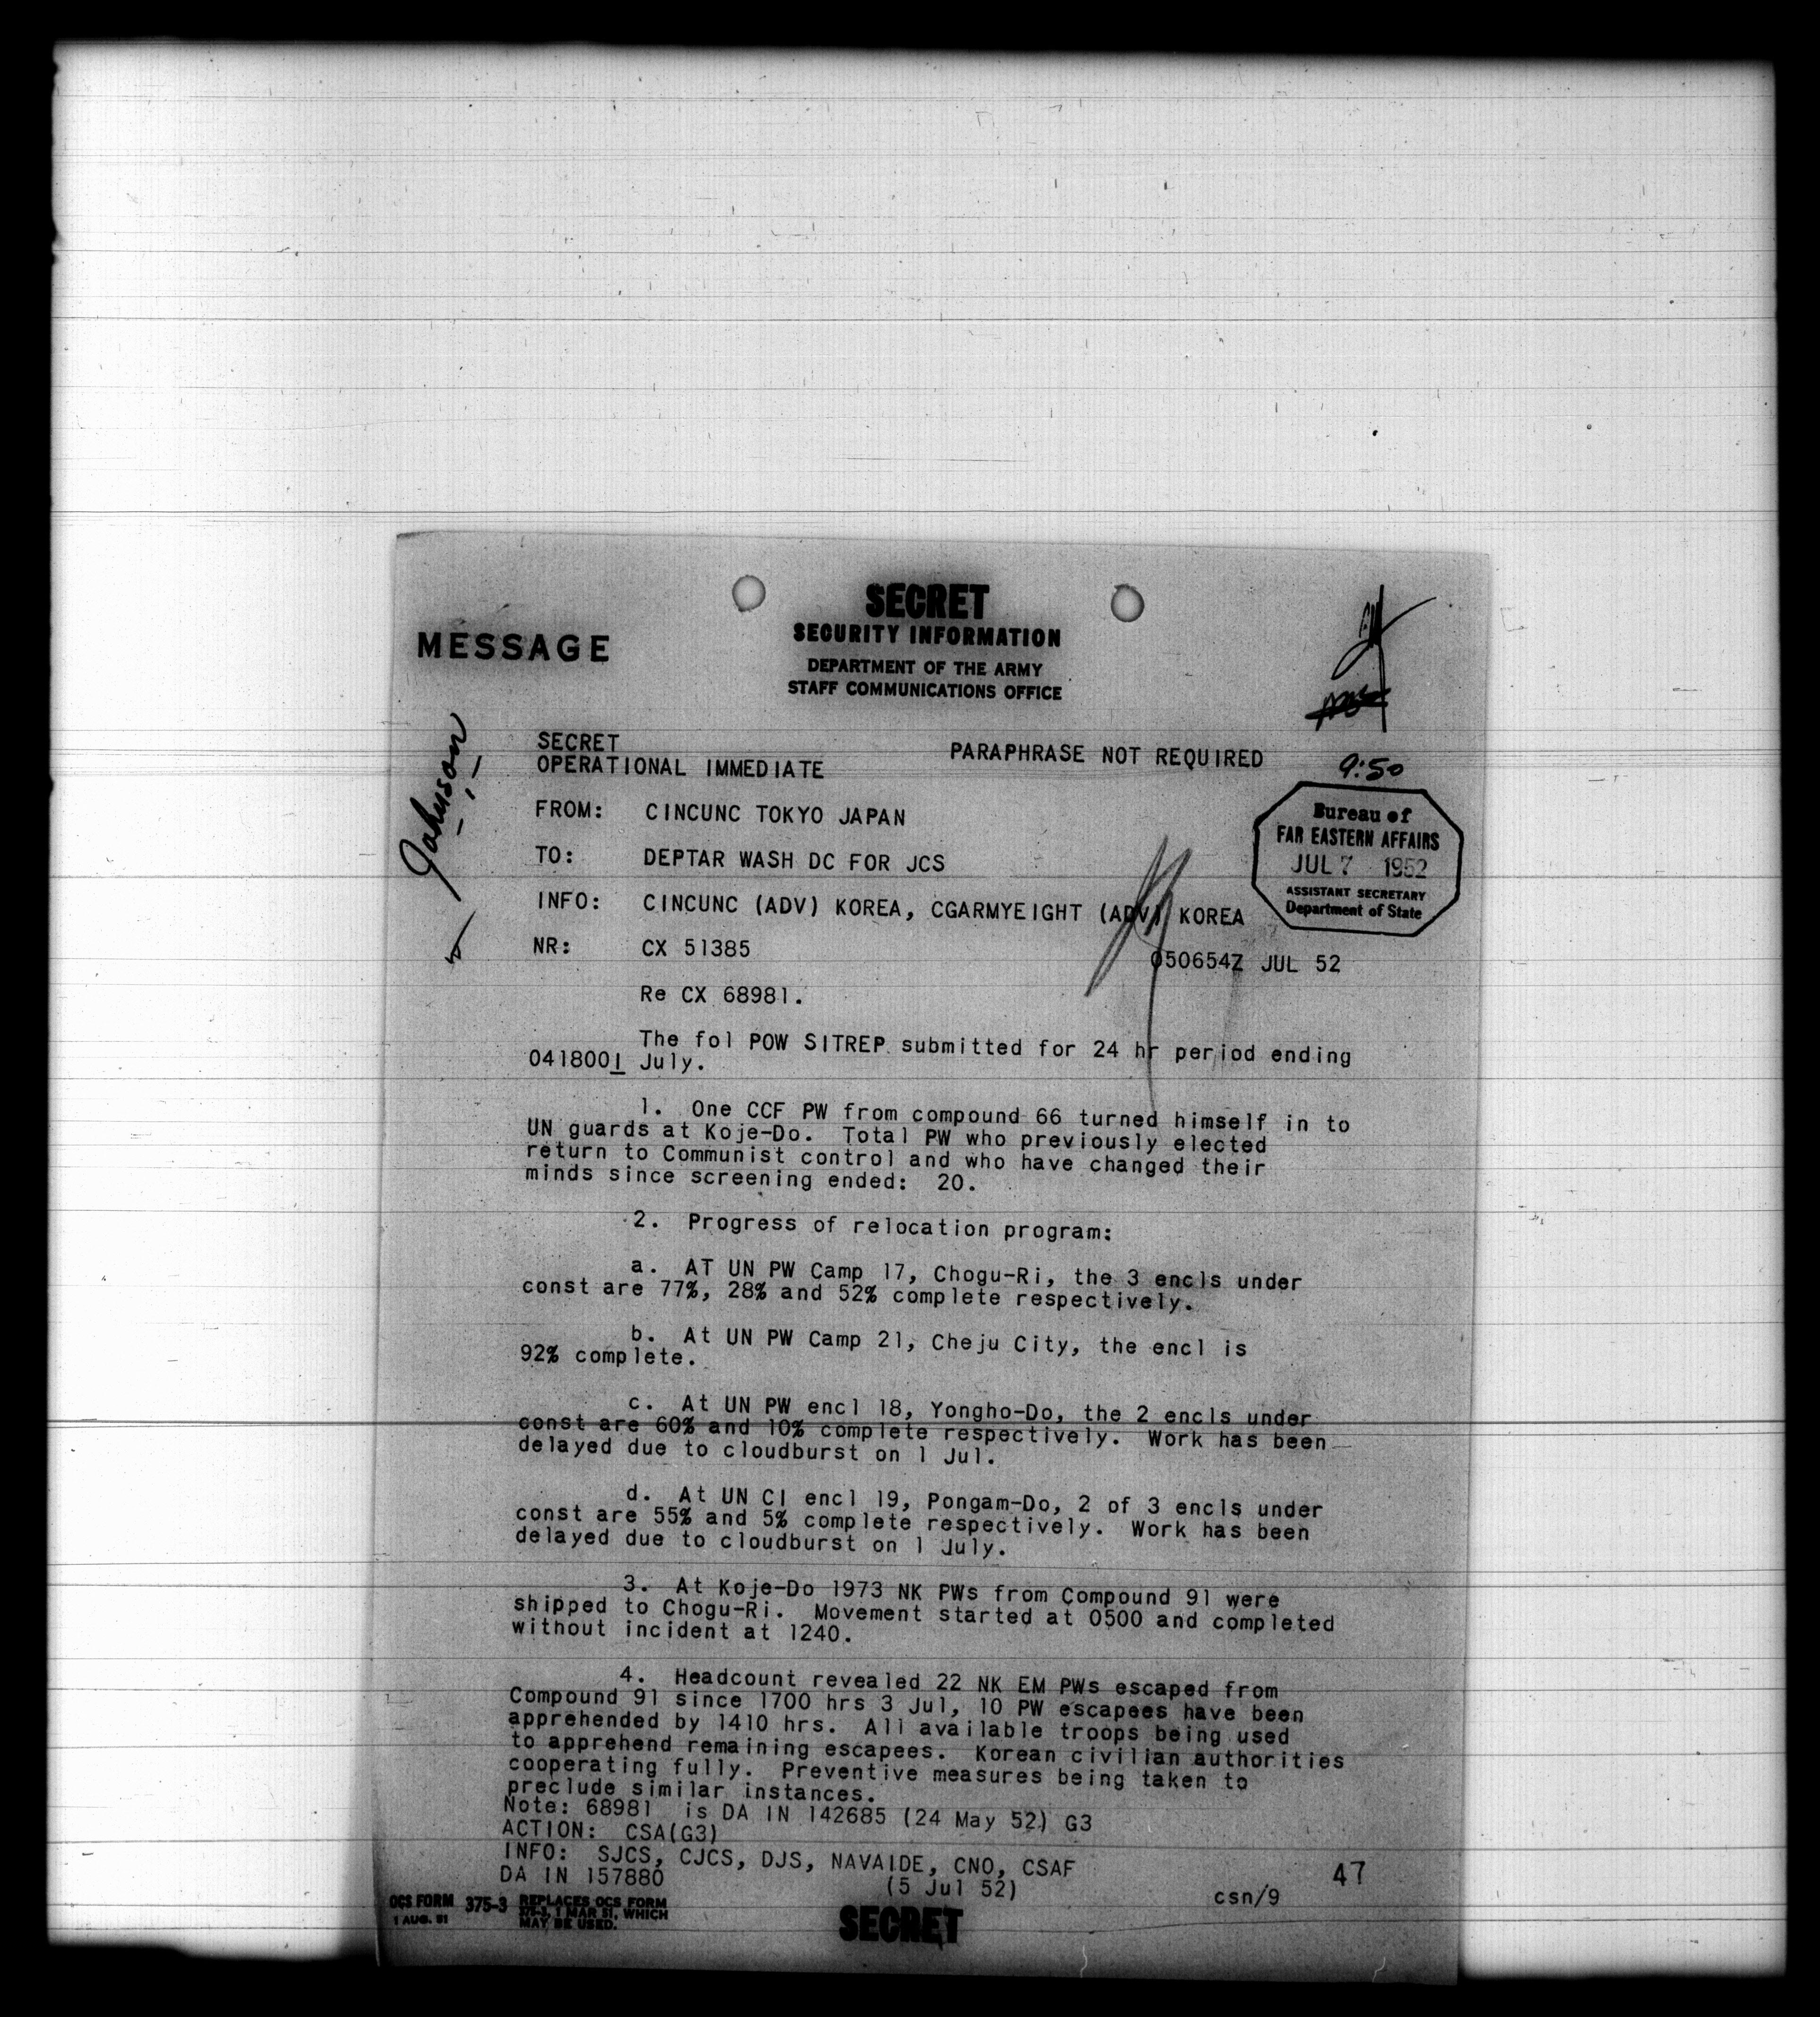 SECRET
SECURITY INFORMATION
MESSAGE
DEPARTMENT OF THE ARMY
STAFF COMMUNICATIONS OFFICE
Johnson
SECRET
OPERATIONAL IMMEDIATE
PARAPHRASE NOT REQUIRED
9:50
Bureau of
FAR EASTERN AFFAIRS
JUL 7 1952
ASSISTANT SECRETARY
Department of State
FROM: CINCUNC TOKYO JAPAN
TO: DEPTAR WASH DC FOR JCS
INFO: CINCUNC (ADV) KOREA, CGARMYEIGHT (ADV) KOREA
NR: CX 51385
050654Z JUL 52
Re CX 68981.
The fol POW SITREP submitted for 24 hr period ending
041800I July.
1. One CCF PW from compound 66 turned himself in to
UN guards at Koje-Do. Total PW who previously elected
return to Communist control and who have changed their
minds since screening ended: 20.
2. Progress of relocation program:
a. AT UN PW Camp 17, Chogu-Ri, the 3 encls under
const are 77%, 28% and 52% complete respectively.
b. At UN PW Camp 21, Cheju City, the encl is
92% complete.
c. At UN PW encl 18, Yongho-Do, the 2 encls under
const are 60% and 10% complete respectively. Work has been
delayed due to cloudburst on 1 Jul.
d. At UN CI encl 19, Pongam-Do, 2 of 3 encls under
const are 55% and 5% complete respectively. Work has been
delayed due to cloudburst on 1 July.
3. At Koje-Do 1973 NK PWs from Compound 91 were
shipped to Chogu-Ri. Movement started at 0500 and completed
without incident at 1240.
4. Headcount revealed 22 NK EM PWs escaped from
Compound 91 since 1700 hrs 3 Jul, 10 PW escapees have been
apprehended by 1410 hrs. All available troops being used
to apprehend remaining escapees. Korean civilian authorities
cooperating fully. Preventive measures being taken to
preclude similar instances.
Note: 68981 is DA IN 142685 (24 May 52) G3
ACTION: CSA(G3)
INFO: SJCS, CJCS, DJS, NAVAIDE, CNO, CSAF
DA IN 157880 (5 Jul 52)
47
csn/9
OCS FORM 375-3 REPLACES OCS FORM
1 AUG. 51 375-3, 1 MAR 51, WHICH
MAY BE USED.
SECRET